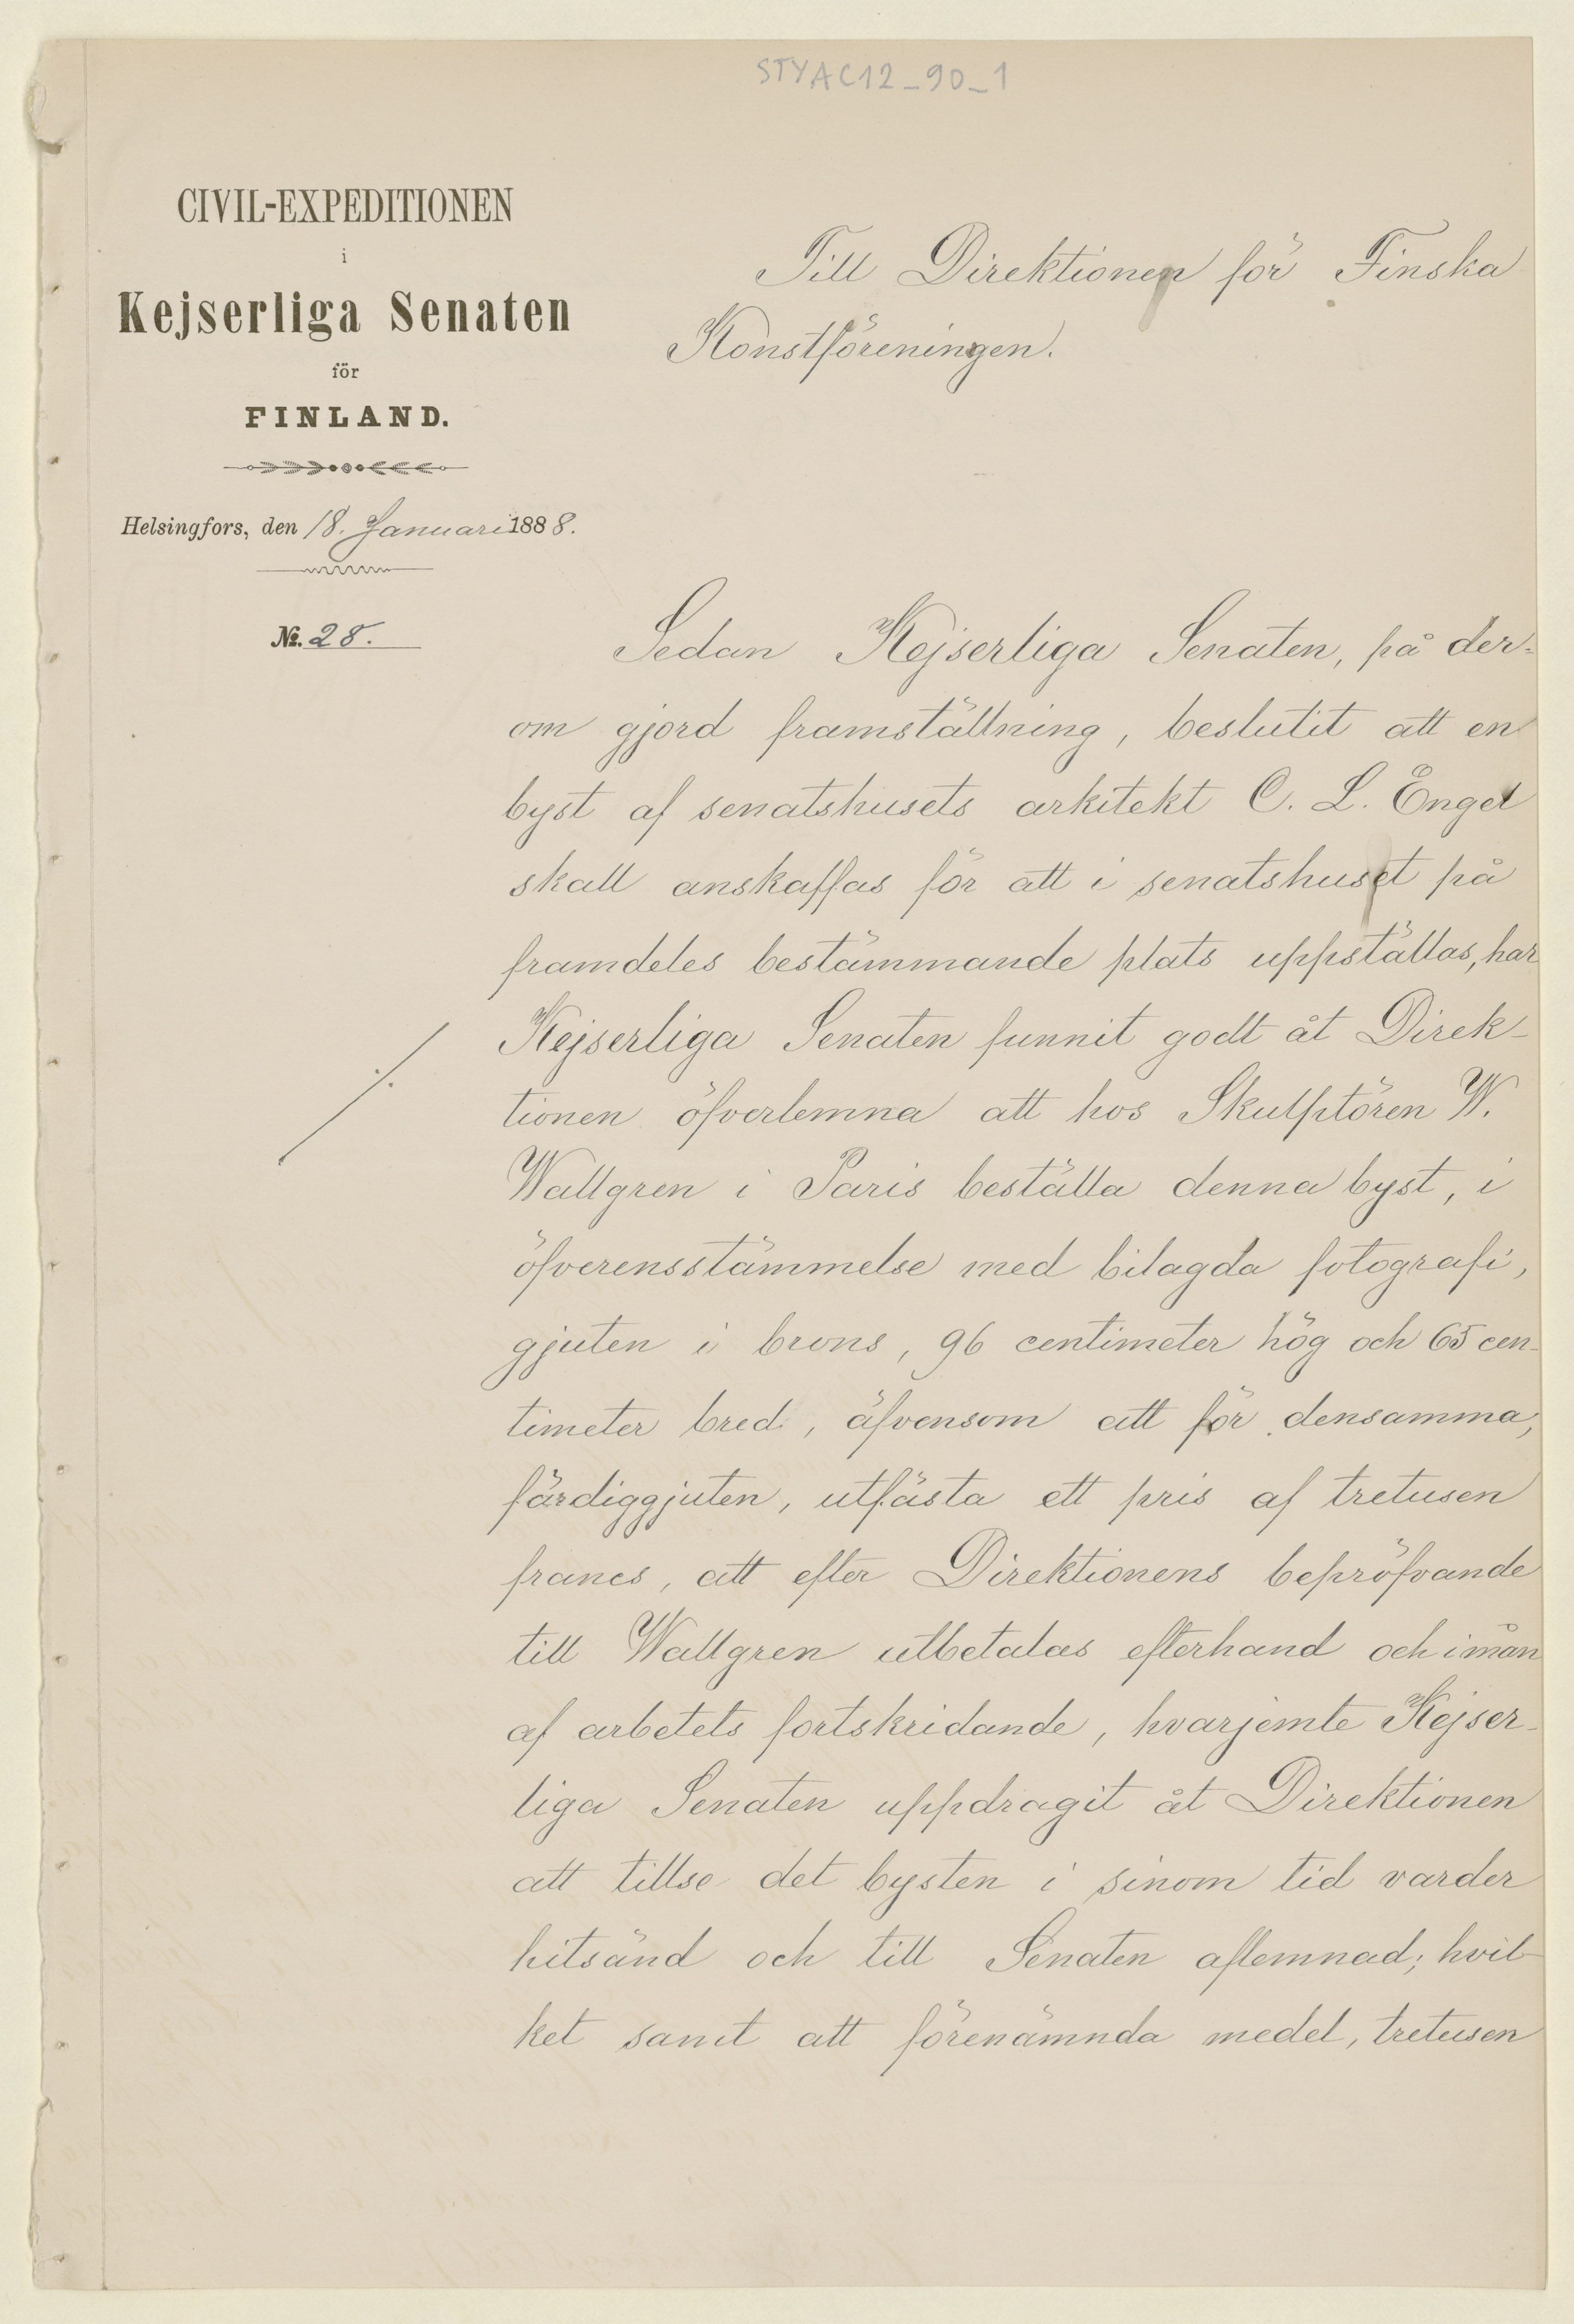 STYAC12_90_1
CIVIL-EXPEDITIONEN
i
Kejserliga Senaten
för
FINLAND.
Helsingfors, den 18. Januari 1888.
№. 28.
Till Direktionen för Finska
Konstföreningen.
Sedan Kejserliga Senaten, på der-
om gjord framställning, beslutit att en
byst af senatshusets arkitekt C. L. Engel
skall anskaffas för att i senatshuset på
framdeles bestämmande plats uppställas, har
Kejserliga Senaten funnit godt åt Direk-
tionen öfverlemna att hos Skulptören W.
Wallgren i Paris beställa denna byst, i
öfverensstämmelse med bilagda fotografi,
gjuten i brons, 96 centimeter hög och 65 cen-
timeter bred, äfvensom att för densamma,
färdiggjuten, utfästa ett pris af tretusen
francs, att efter Direktionens bepröfvande
till Wallgren utbetalas efterhand och i mån
af arbetets fortskridande, hvarjemte Kejser-
liga Senaten uppdragit åt Direktionen
att tillse det bysten i sinom tid varder
hitsänd och till Senaten aflemnad; hvil-
ket samt att förenämnda medel, tretusen